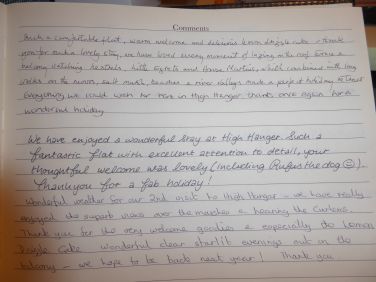 Comments
Such a comfortable flat, warm welcome and delicious lemon drizzle cake - thank
you for such a lovely stay, we have loved every moment of lazing on the roof terrace &
balcony watching kestrels, little egrets and House Martins, which combined with long
walks on the moors, salt marsh, beaches & river valleys made a perfect holiday
Everything we could wish for here in High Hanger, thanks once again for a
wonderful holiday
We have enjoyed a wonderful stay at High Hanger. Such a
fantastic flat with excellent attention to detail, your
thoughtful welcome was lovely (including Rufus the dog ☺).
Thankyou for a fab holiday!
Wonderful weather for our 2nd visit to High Hanger - we have really
enjoyed the superb views over the marshes & hearing the Curlews.
Thank you for the very welcome goodies & especially the Lemon
Drizzle Cake. Wonderful clear starlit evenings out on the
balcony - we hope to be back next year! Thank you